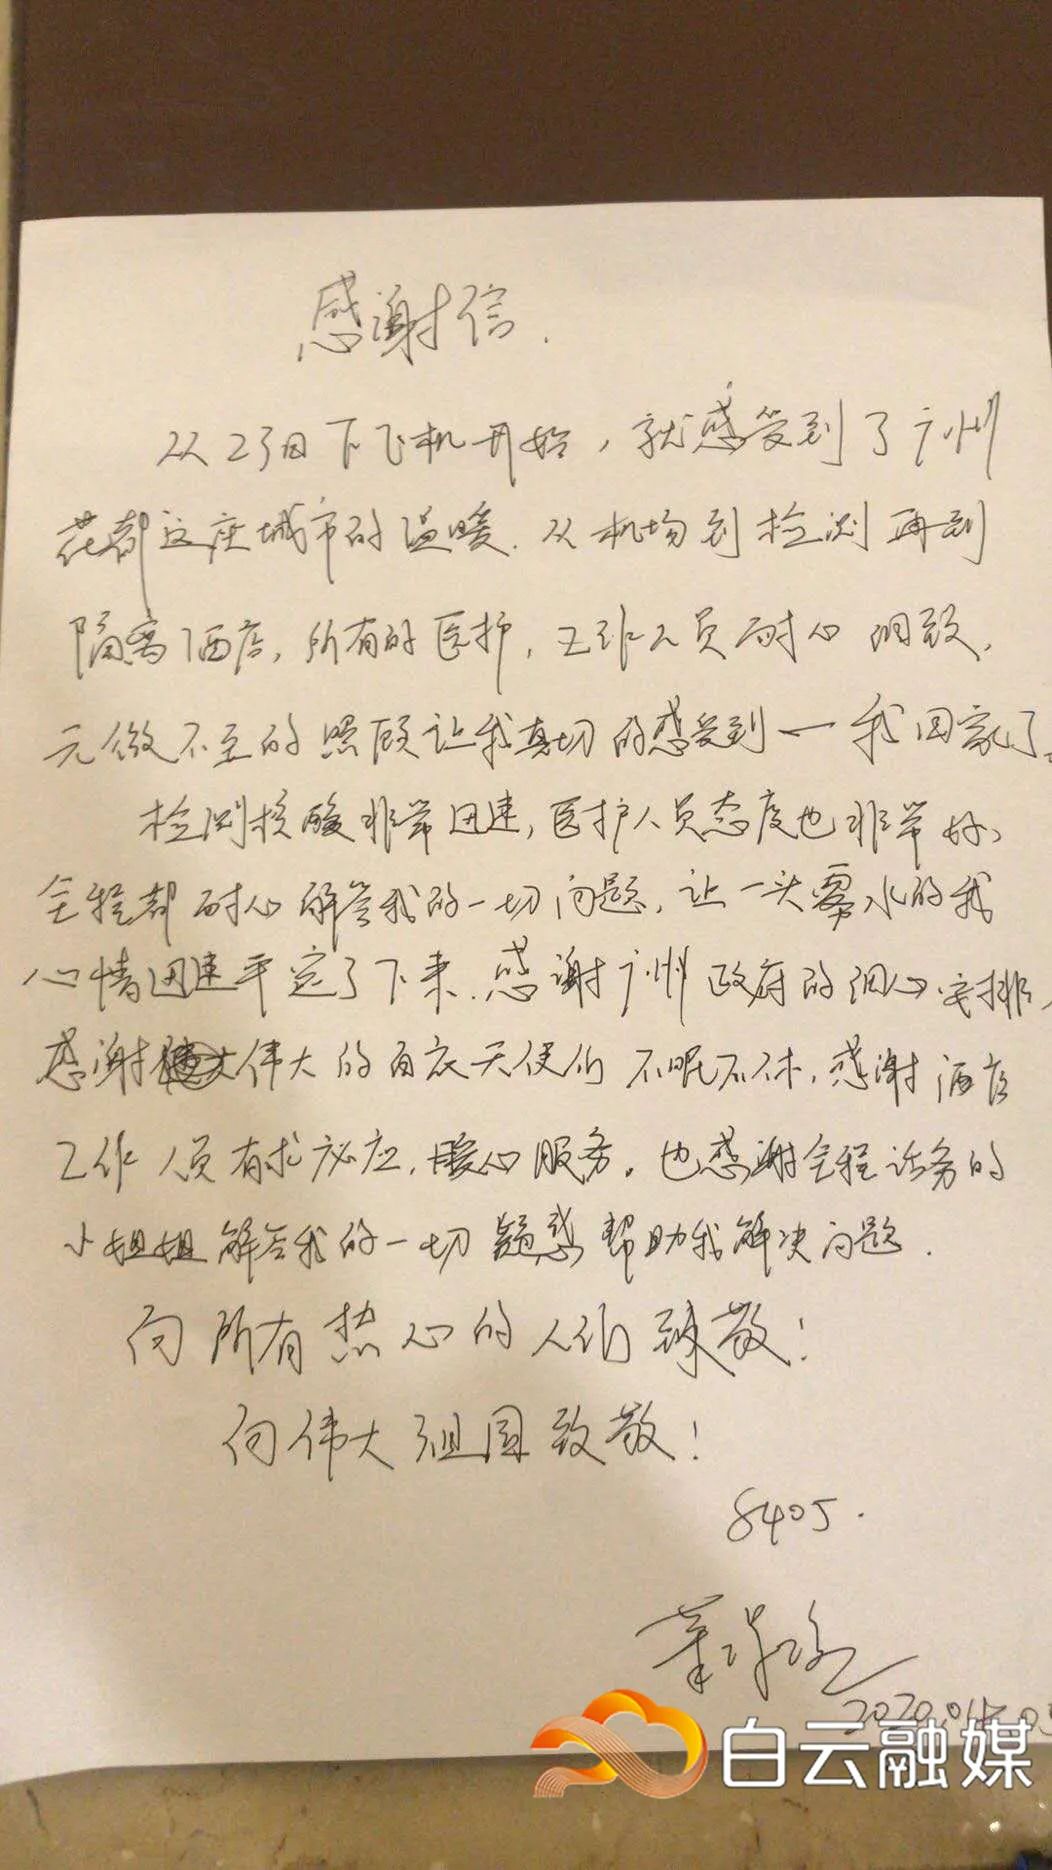 感谢信.
从23日下飞机开始，就感受到了广州
花都这座城市的温暖.从机场到检测再到
隔离酒店，所有的医护，工作人员耐心细致，
无微不至的照顾让我真切的感受到一我回家了。
检测核酸非常迅速，医护人员态度也非常好、
全程都耐心解答我的一切问题，让一头雾水的我
心情迅速平定了下来.感谢广州政府的细心安排，
感谢伟大的白衣天使们不眠不休，感谢酒店
工作人员有求必应，暖心服务。也感谢全程话务的
小姐姐解答我的一切疑惑帮助我解决问题.
向所有热心的人们致敬！
向伟大祖国致敬！
8405.
2020.04.05
白云融媒